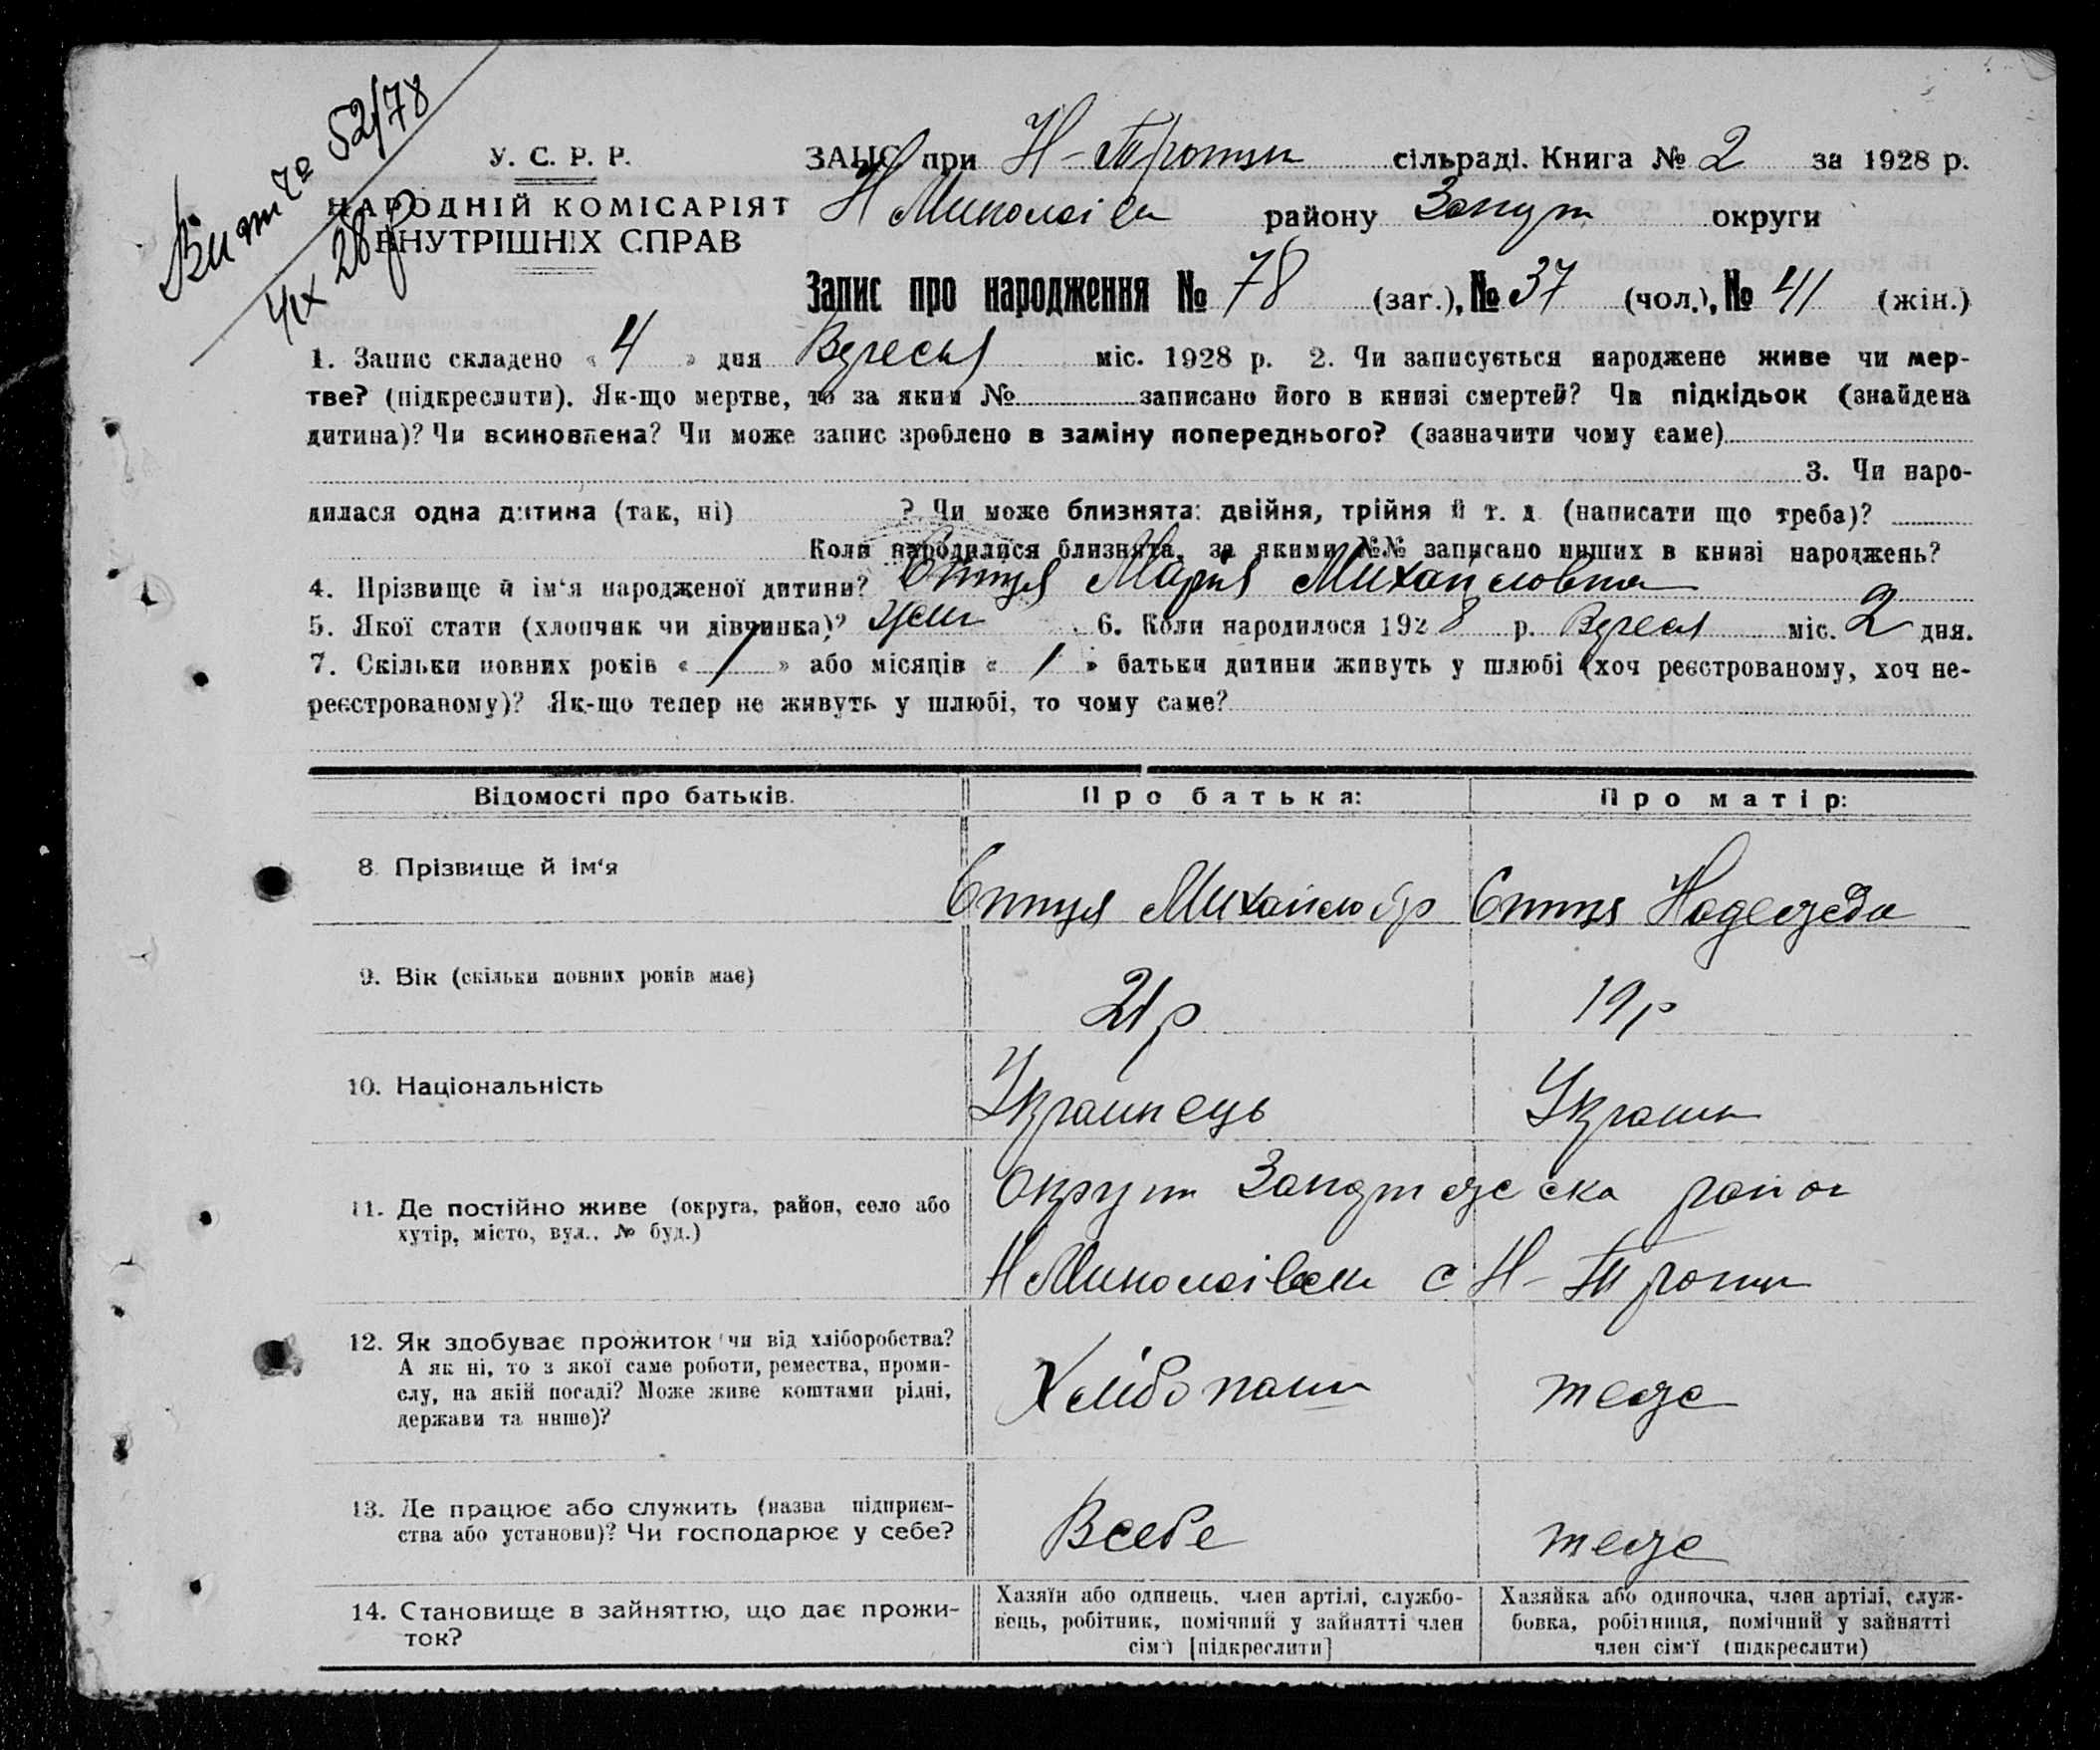 Витяг № 52/78
4/IX 28 р
У. С. Р. Р.
НАРОДНІЙ КОМІСАРІЯТ
ВНУТРІШНІХ СПРАВ
ЗАГС при Н-Троицк сільраді. Книга № 2 за 1928 р.
Н Миколаівск району Запуг округи
Запис про народження № 78 (заг.), № 37 (чол.), № 41 (жін.)
1. Запис складено « 4 » дня Вересня міс. 1928 р. 2. Чи записується народжене живе чи мер-
тве? (підкреслити). Як-що мертве, то за яким № записано його в книзі смертей? Чи підкідьок (знайдена
дитина)? Чи всиновлена? Чи може запис зроблено в заміну попереднього? (зазначити чому саме)
3. Чи наро-
дилася одна дитина (так, ні) ? Чи може близнята: двійня, трійня й т. д. (написати що треба)?
Коли народилися близнята, за якими №№ записано инших в книзі народжень?
4. Прізвище й ім‘я народженої дитини? Мария Михайловна
5. Якої стати (хлопчик чи дівчинка)? жен 6. Коли народилося 1928 р. Вересня міс. 2 дня.
7. Скільки повних років « / » або місяців « / » батьки дитини живуть у шлюбі (хоч реєстрованому, хоч не-
реєстрованому)? Як-що тепер не живуть у шлюбі, то чому саме?
Відомості про батьків. Про батька: Про матір:
8. Прізвище й ім‘я Михайло Надежда
9. Вік (скільки повних років має) 21 р 19 р
10. Національність Украинець Украин
11. Де постійно живе (округа, район, село або
хутір, місто, вул., № буд.)
Округ район
Н Миколаівски с Н-Троицк
12. Як здобуває прожиток чи від хліборобства?
А як ні, то з якої саме роботи, ремества, проми-
слу, на якій посаді? Може живе коштами рідні,
держави та инше)?
Хлібопаш теже
13. Де працює або служить (назва підприєм-
ства або установи)? Чи господарює у себе?
Всебе теже
14. Становище в зайняттю, що дає прожи-
ток?
Хазяїн або одинець, член артілі, службо-
вець, робітник, помічний у зайнятті член
сім‘ї [підкреслити]
Хазяйка або одиночка, член артілі, служ-
бовка, робітниця, помічний у зайнятті
член сім‘ї (підкреслити)